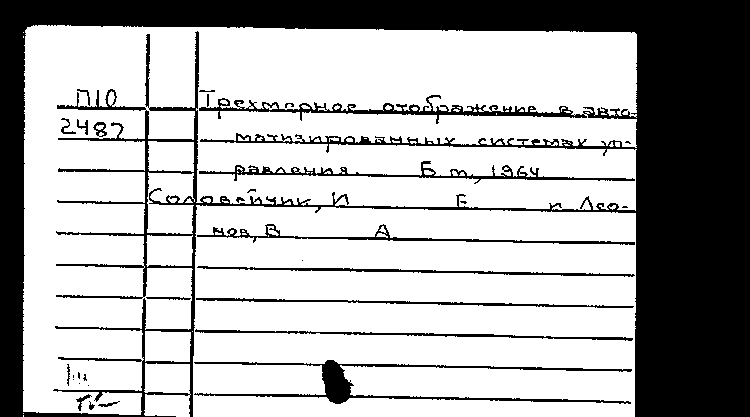 П10 Трехмерное отображение в авто-
2487 матизированных системах уп-
равления. Б м., 1964
Соловейчик, И Е и Лео-
нов, В А